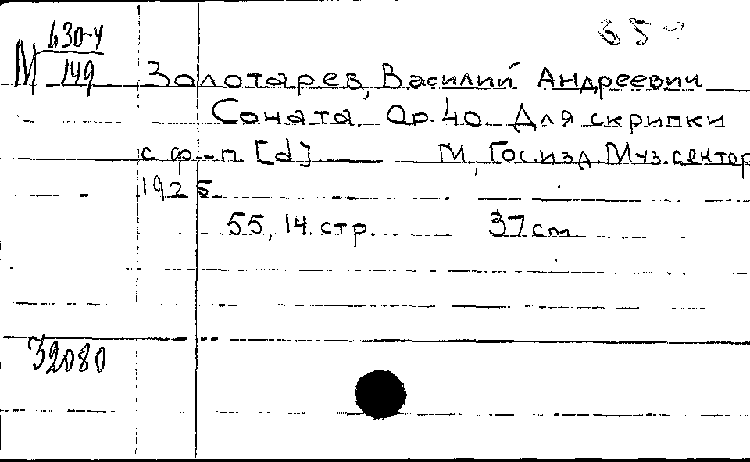 М 630-4
149
Золотарев, Василий Андреевич
Соната. Ор. 40. Для скрипки
с ф-п. [d] М, Гос. изд. Муз. сектор
1925
55, 14. стр. 37 см
32080